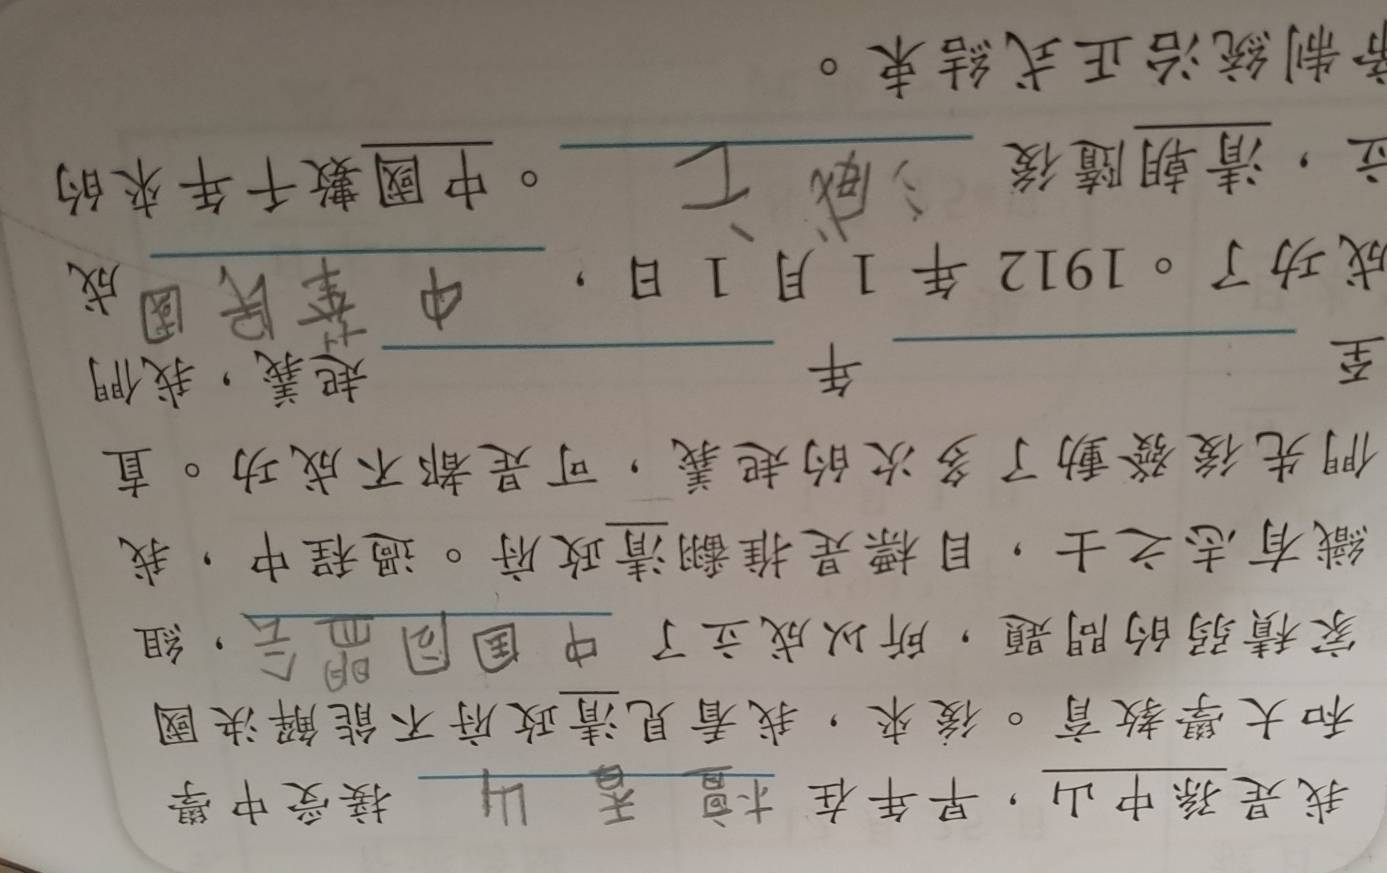 我是孫中山，早年在檀香山接受中學
和大學教育。後來，我看見清政府不能解決國
家積弱的問題，所以成立了中国同盟会，組
織有志之士，目標是推翻清政府。過程中，我
們先後發動了多次的起義，可是都不成功。直
至 年 起義，我們
成功了。1912年1月1日，中華民國成
立，清朝隨後滅亡。中國數千年來的
帝制統治正式結束。